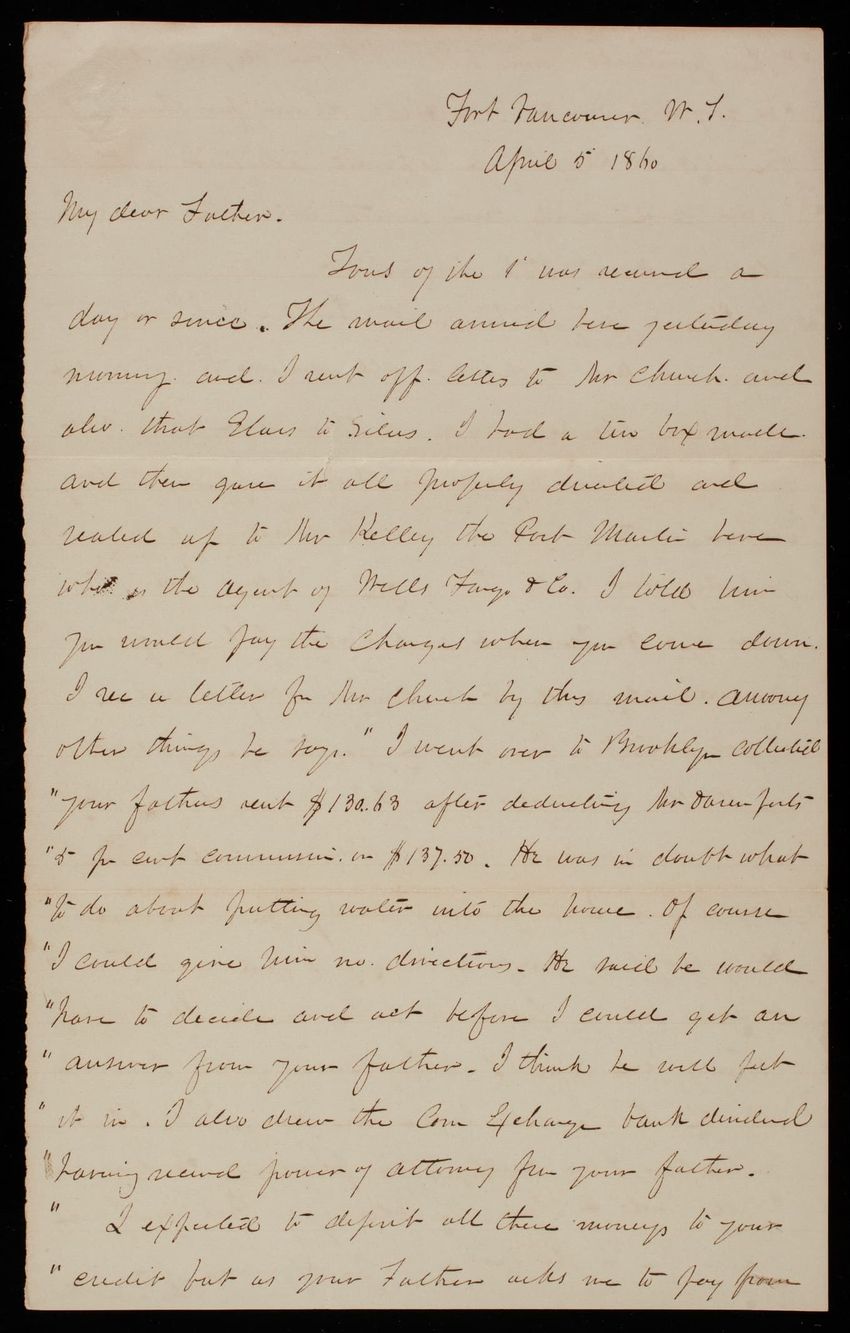 Fort Vancouver W. T.
April 5 1860
My dear Father.
Yours of the 1st was received a
day or since. The mail arrived here yesterday
morning. and. I sent off. letters to Mr Church. and
also. that to Silas. I had a tin box made.
and then gave it all properly directed and
sealed up to Mr Kelley the Post Master here
who is the agent of Wells Fargo & Co. I told him
you would pay the charges when you come down.
I rec a letter fm Mr Church by this mail. among
other things he says. "I went over to Brooklyn collected
"your fathers rent $130.63 after deducting Mr Davenports
"5 pr cent commission. on $137.50. He was in doubt what
"to do about putting water into the house. Of course
"I could give him no. directions. He said he would
"have to decide and act before I could get an
"answer from your father. I think he will put
"it in. I also drew the Corn Exchange bank dividend
"having recevd power of attorney fm your father.
" I expected to deposit all these moneys to your
"credit but as your Father asks me to pay from